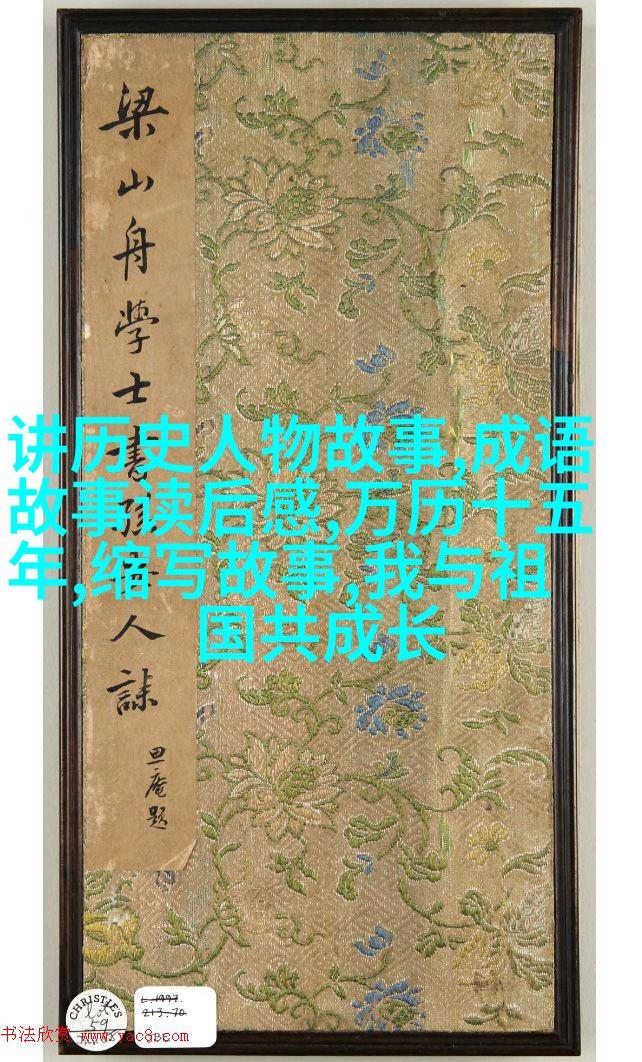 梁山舟學士書孫人誄
庵題
讲历史人物故事,成语
故事读后感,万历十五
年,缩写故事,我与祖
国共成长
CHRISTIE'S
Lot
59
L.1997.
213.70
书法欣赏 www.yac8.com